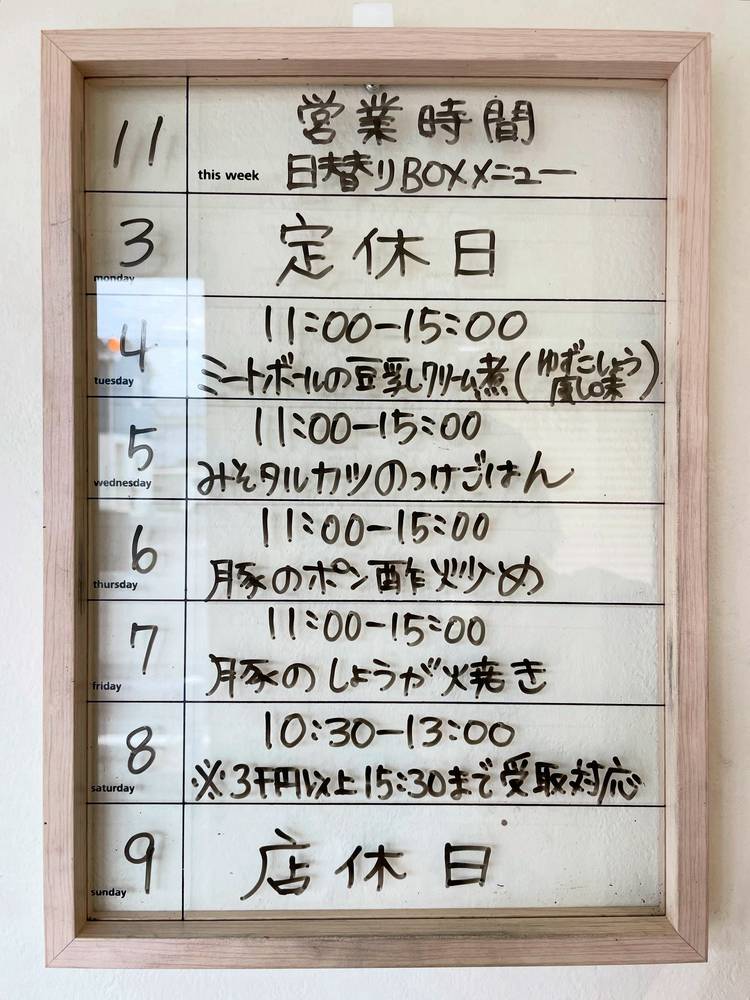 11
営業時間
this week 日替りBOXメニュー
3
定休日
monday
11:00-15:00
4
tuesday
ミートボールの豆乳クリーム煮(ゆずこしょう風味)
11:00-15:00
5
wednesday
みそタルカツのっけごはん
11:00-15:00
6
thursday
豚のポン酢炒め
11:00-15:00
7
friday
豚のしょうが焼き
10:30-13:00
8
saturday
※3千円以上15:30まで受取対応
9
店休日
sunday